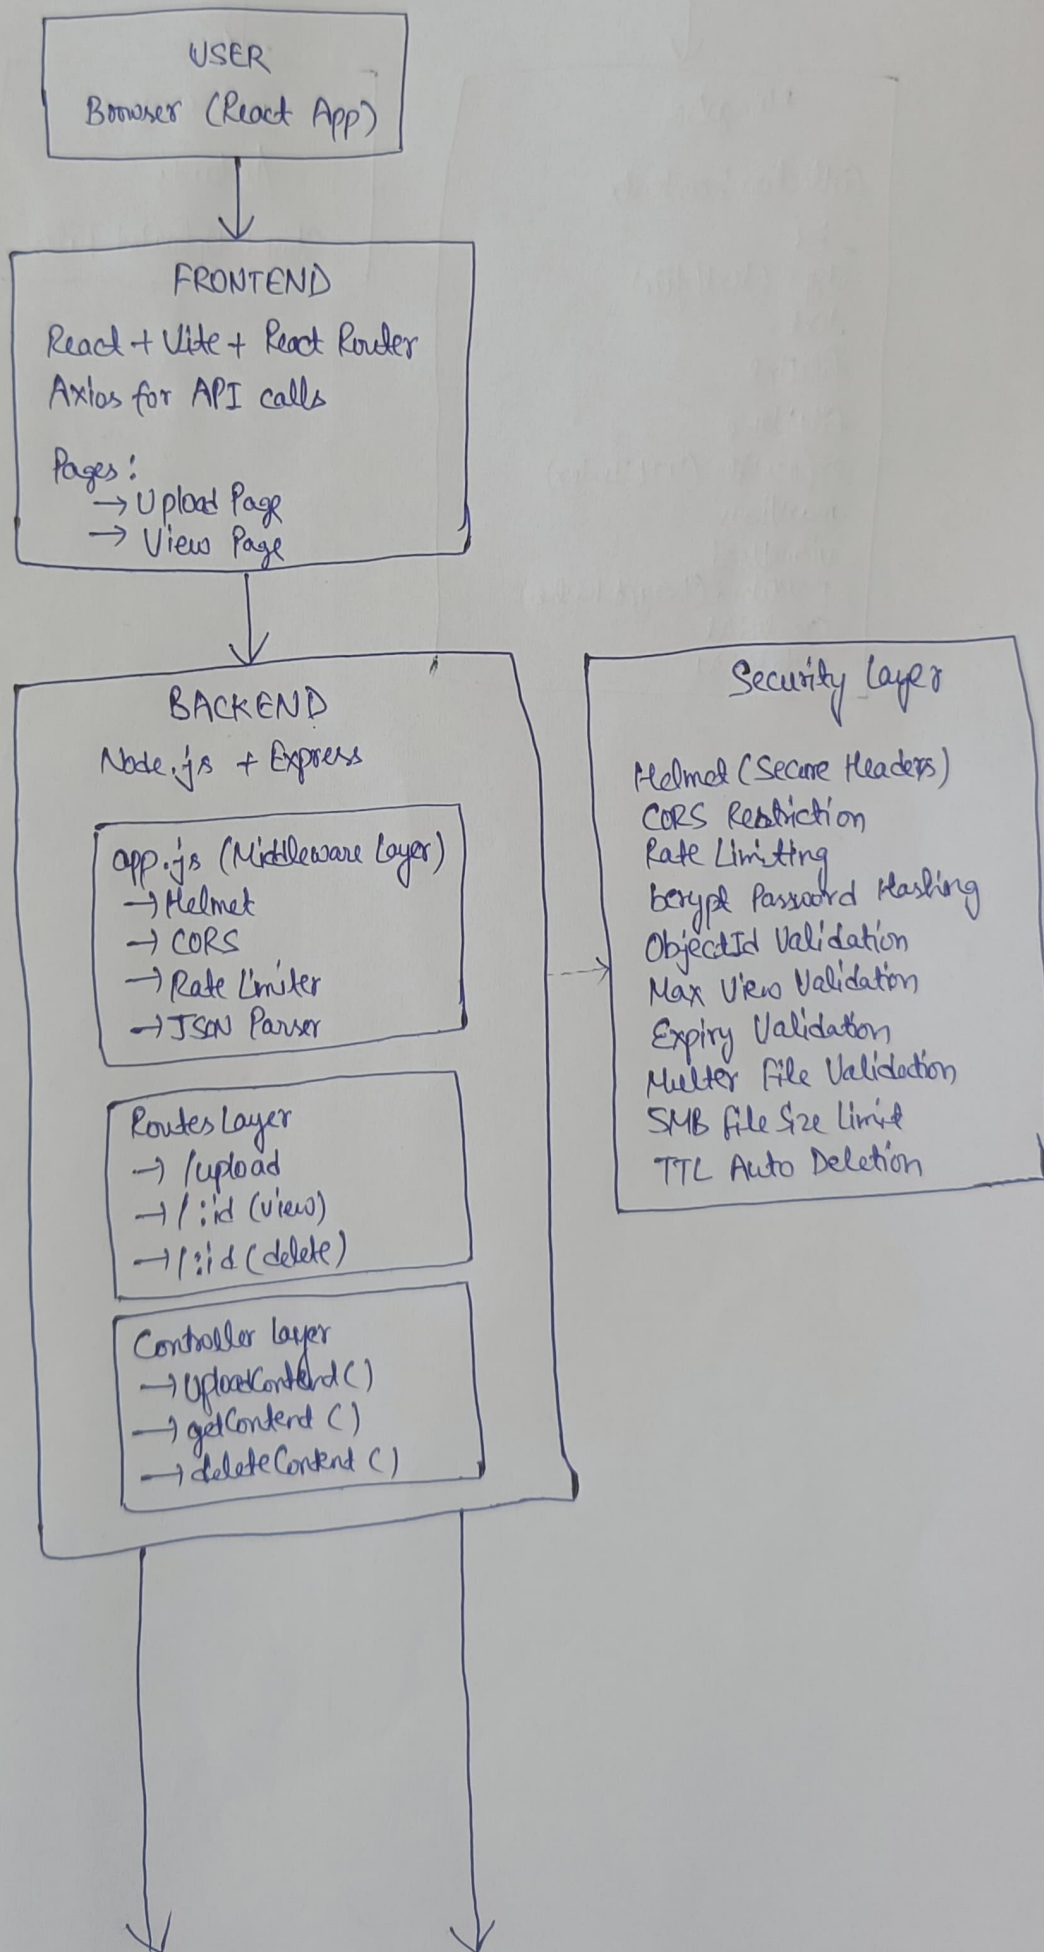 USER
Browser (React App)
FRONTEND
React + Vite + React Router
Axios for API calls
Pages:
→ Upload Page
→ View Page
BACKEND
Node.js + Express
app.js (Middleware Layer)
→ Helmet
→ CORS
→ Rate Limiter
→ JSON Parser
Routes Layer
→ /upload
→ /:id (view)
→ /:id (delete)
Controller Layer
→ UploadContent()
→ getContent ()
→ deleteContent ()
Security Layer
Helmet (Secure Headers)
CORS Restriction
Rate Limiting
bcrypt Password Hashing
ObjectId Validation
Max View Validation
Expiry Validation
Multer File Validation
5MB File Size Limit
TTL Auto Deletion